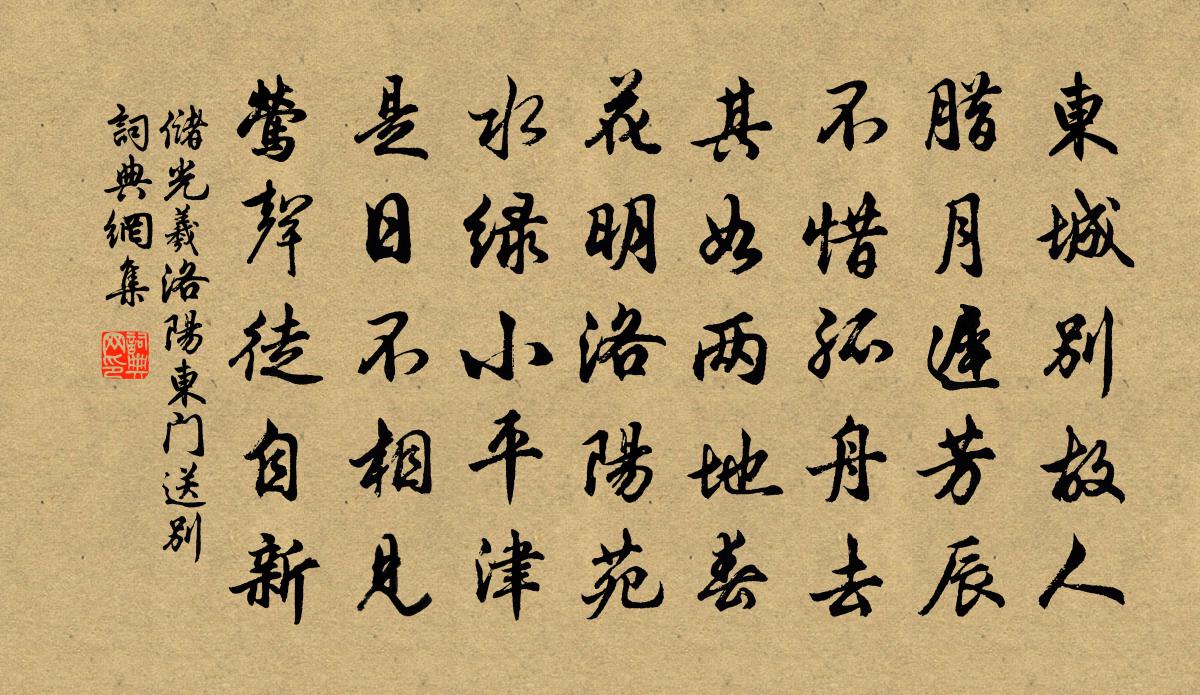 東城別故人
腊月遲芳辰
不惜孤舟去
其如两地春
花明洛陽苑
水緑小平津
是日不相見
鶯聲徒自新
儲光羲洛陽東门送別
詞典網集
詞典网印